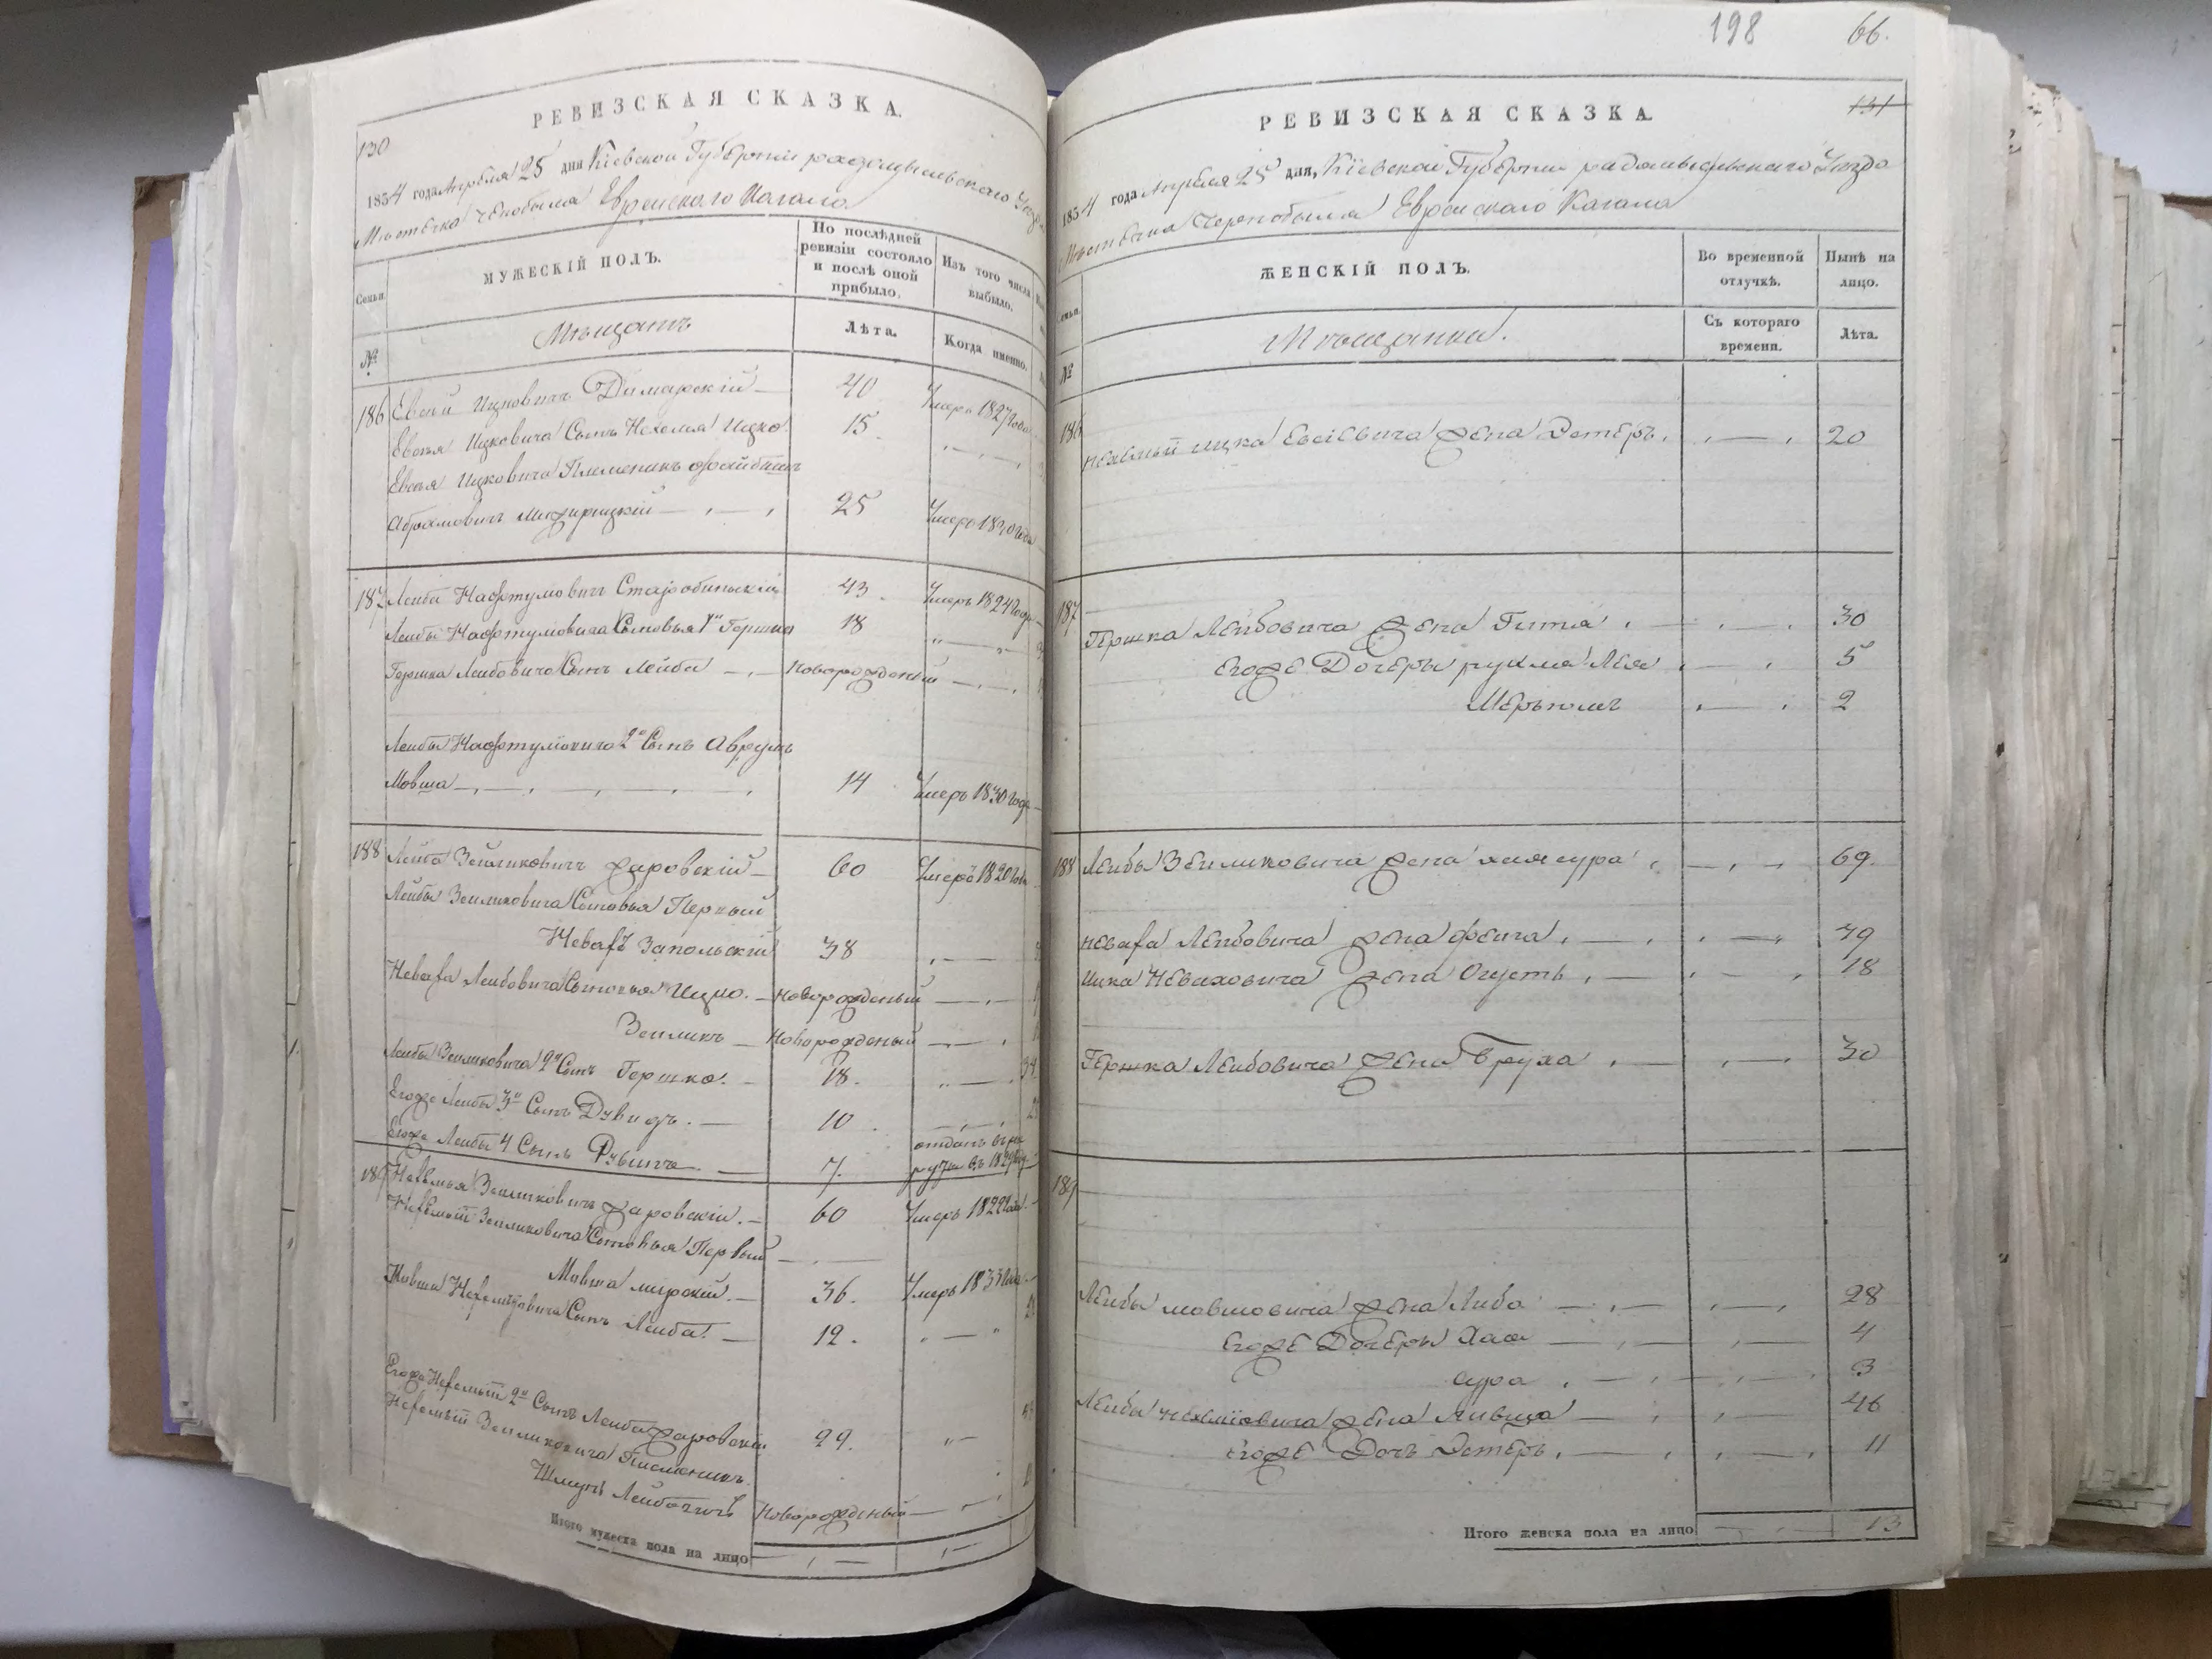 РЕВИЗСКАЯ СКАЗКА.
130
1834 года Апреля 25 дня Кіевской Губерніи радомысльского
Мѣстечка Чернобыля Еврейского Кагала
Семьи
МУЖЕСКІЙ ПОЛЪ.
По послѣдней ревизіи состояло и послѣ оной прибыло.
Изъ того числа выбыло.
№
Мѣщанъ
Лѣта.
Когда именно.
186 Евсей Ицковичъ Димарскій 40 Умеръ 1827 года
Евсѣя Ицковича Сынъ Нехемія Ицко 15
Евсѣя Ицковича Племеникъ
Абрамовичъ 25 Умеръ 1830 года
187 Лейба Нафтуловичъ Старобинскій 43 Умеръ 1824 года
Лейбы Нафтуловича Сыновья 1й Гершко 18
Гершка Лейбовича Сынъ Лейба Новорожденый
Лейбы Нафтуловича 2й Сынъ Аврумъ
Мовша 14 Умеръ 1830 года
188 Лейба Зейликовичъ Жаровскій 60 Умеръ 1820 года
Лейбы Зейликовича Сыновья Первый
Невахъ Запольскій 38
Неваха Лейбовича Сыновья Ицко. Новорожденый
Зейликъ Новорожденый
Лейбы Зейликовича 2й Сынъ Гершко. 18.
Егоже Лейбы 3й Сынъ Дувидъ. 10
Егоже Лейбы 4 Сынъ Рувинъ 7. отданъ въ рекруты въ
189 Нехемья Зейликовичъ Жаровскій. 60 Умеръ 1822 года
Нехеміи Зейликовича Сыновья Первый
Мовша мирскій. 36. Умеръ 1833 года
Мовши Нехеміовича Сынъ Лейба. 12.
Егоже Нехеміи 2й Сынъ Лейба Жаровскій 29.
Нехеміи Зейликовича Племеникъ
Шмуль Лейбовичъ Новорожденый
Итого мужеска пола на лицо
198 66.
РЕВИЗСКАЯ СКАЗКА.
131
1834 года Апреля 25 дня, Кіевской Губерніи радомысльского Уезда
Мѣстечка Чернобыля Еврейского Кагала
Семьи
ЖЕНСКІЙ ПОЛЪ.
Во временной отлучкѣ.
Нынѣ на лицо.
№
Мѣщанки.
Съ котораго времени.
Лѣта.
186 Нехеміи Ицка Евсіевича жена Эстеръ. 20
187
Гершка Лейбовича жена Гитля 30
Егоже Дочеры рухля Лея 5
2
188 Лейбы Зейликовича жена хая сура 69.
Неваха Лейбовича жена фейга 49
Ицка Неваховича жена 18
Гершка Лейбовича жена Бруха 30
189
Лейбы мовшовича жена Либа 28
Егоже Дочеры Хая 4
сура 3
Лейбы нехеміовича жена Ривка 46
Егоже Дочъ Эстеръ. 11
Итого женска пола на лицо 13